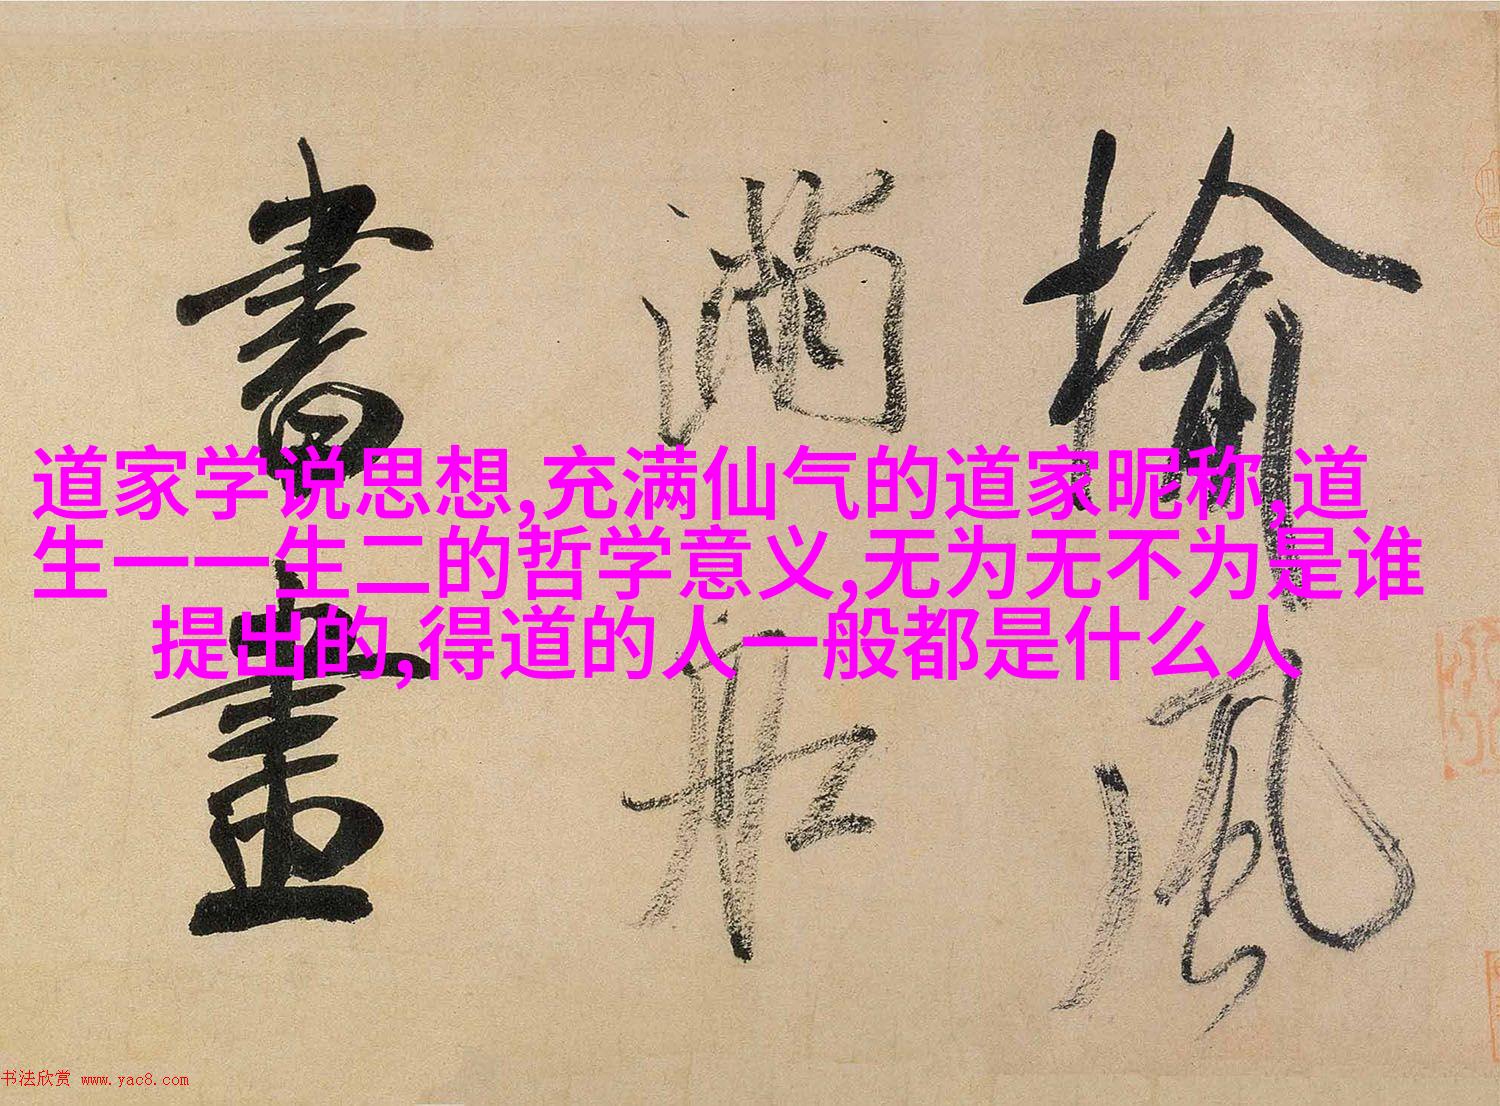 榆風
滿船
書畫
道家学说思想,充满仙气的道家昵称,道
生一一生二的哲学意义,无为无不为是谁
提出的,得道的人一般都是什么人
书法欣赏 www.yac8.com